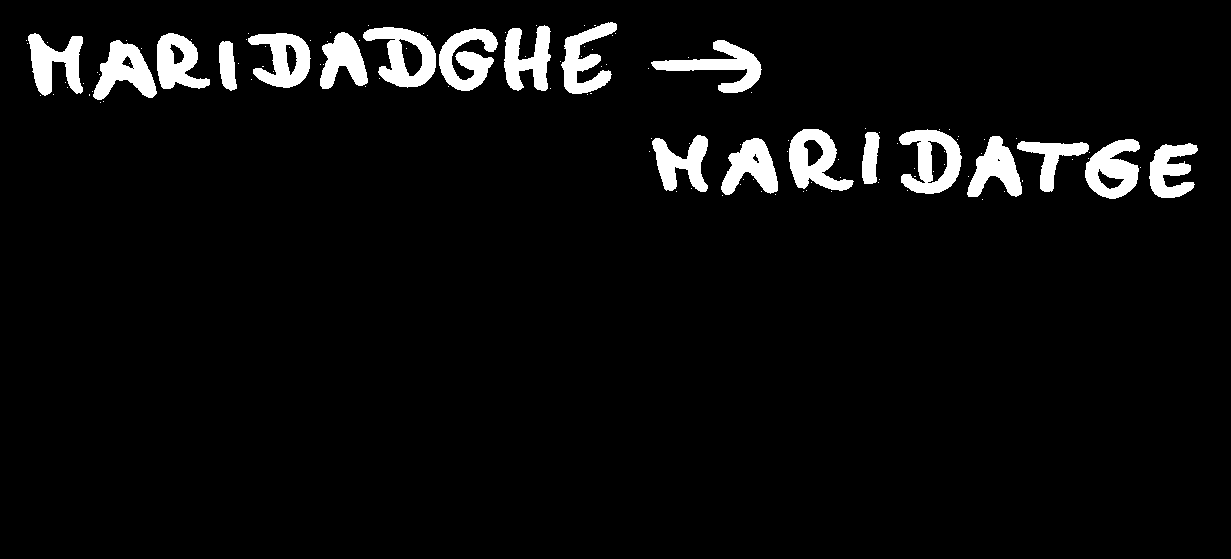 MARIDADGHE →
MARIDATGE